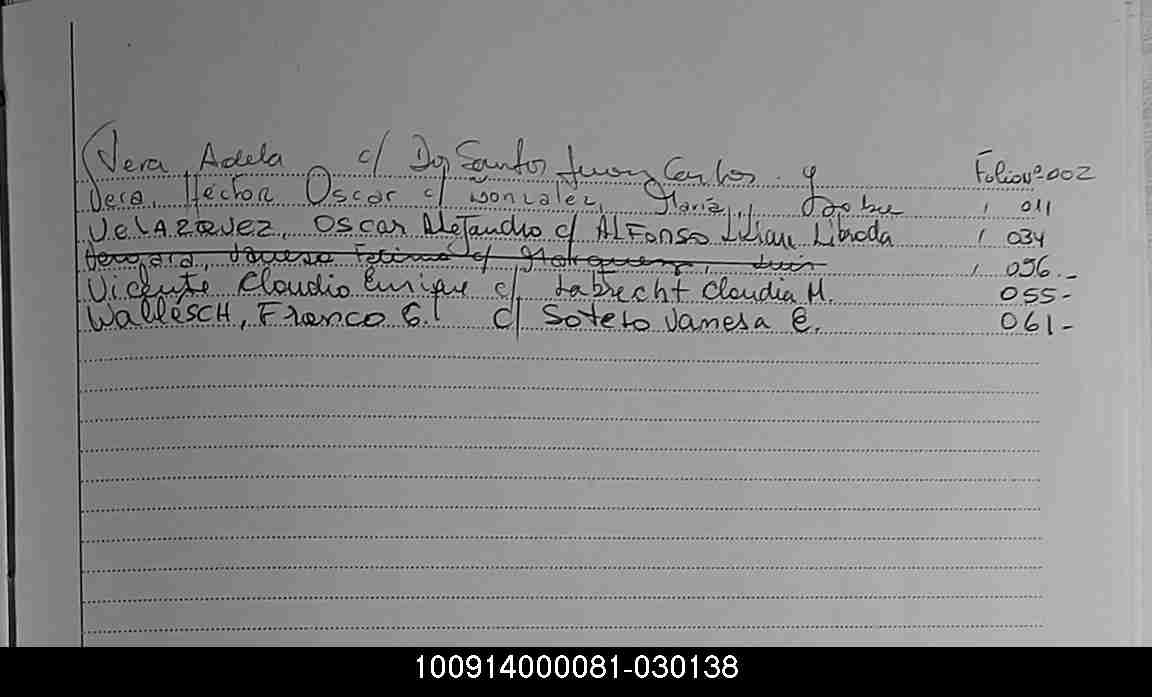 Vera, Adela c/ Dos Santos Juan Carlos. y Folio nº 002
Vera, Hector Oscar c/ Gonzalez, María, 011
VelAZQUEZ, Oscar Alejandro c/ ALFonso Lilian Librada 034
Vanesa Fatima c/ Luis 056.-
Vicente Claudio Enrique c/ Labrecht Claudia M. 055-
WallesCH, Franco G. c/ Sotelo Vanesa E. 061-
100914000081-030138